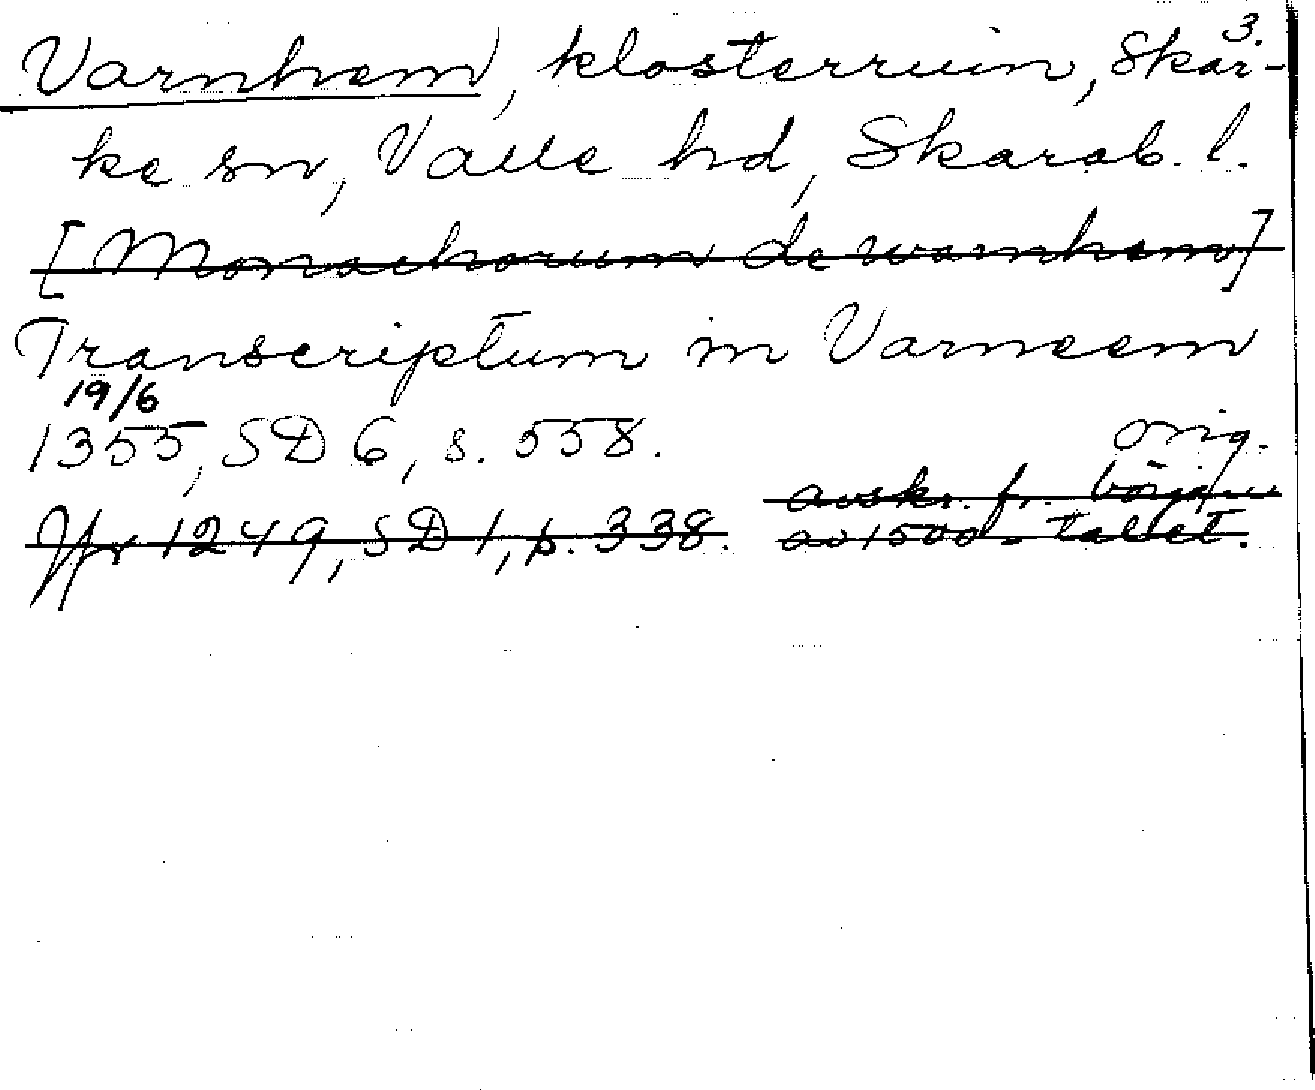 3.
Varnhem, klosterruin, Skär-
ke sn, Valle hd, Skarab. l.
[Monachorum de warnhem]
Transcriptum in Varneem
19/6
1355, SD 6, s. 558. orig.
avskr. fr. början
Yfr 1249, SD 1, p. 338. av 1500-talet.